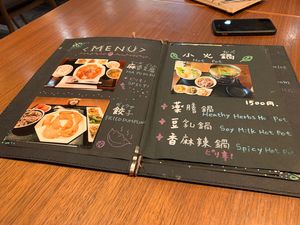 <MENU>
麻婆豆腐
餃子
小火鍋
Hot Pot
1500円
薬膳鍋
Healthy Herbs Hot Pot
豆乳鍋
Soy Milk Hot Pot
香麻辣鍋
Spicy Hot Pot
ピリ辛!